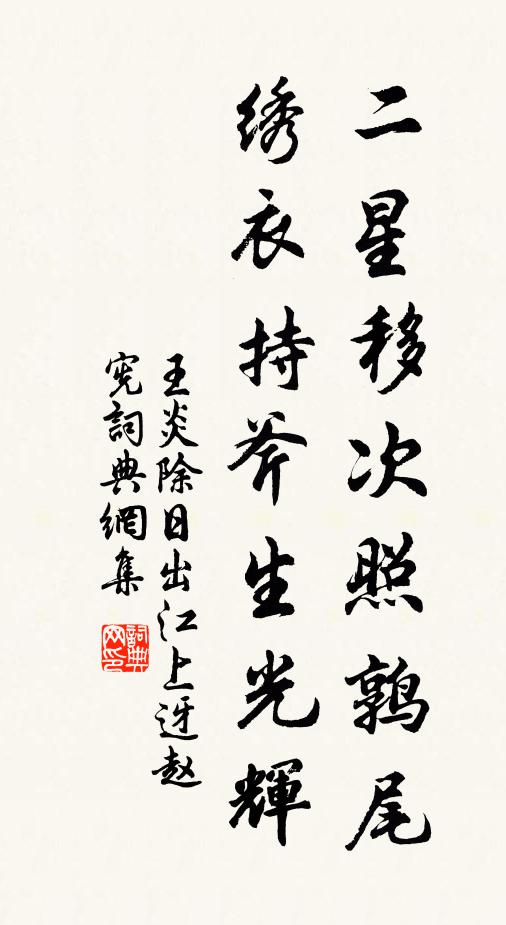 二星移次照鹑尾
绣衣持斧生光輝
王炎除日出江上迓赵
宪詞典網集
詞典网印